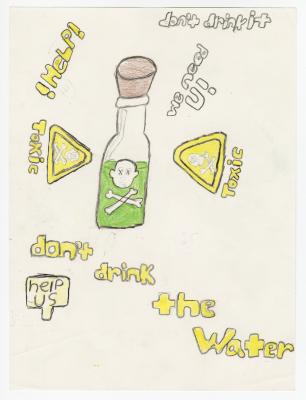 don't drink it
!HELP!
we need
U!
Toxic
Toxic
don't
drink
the
Water
help
us